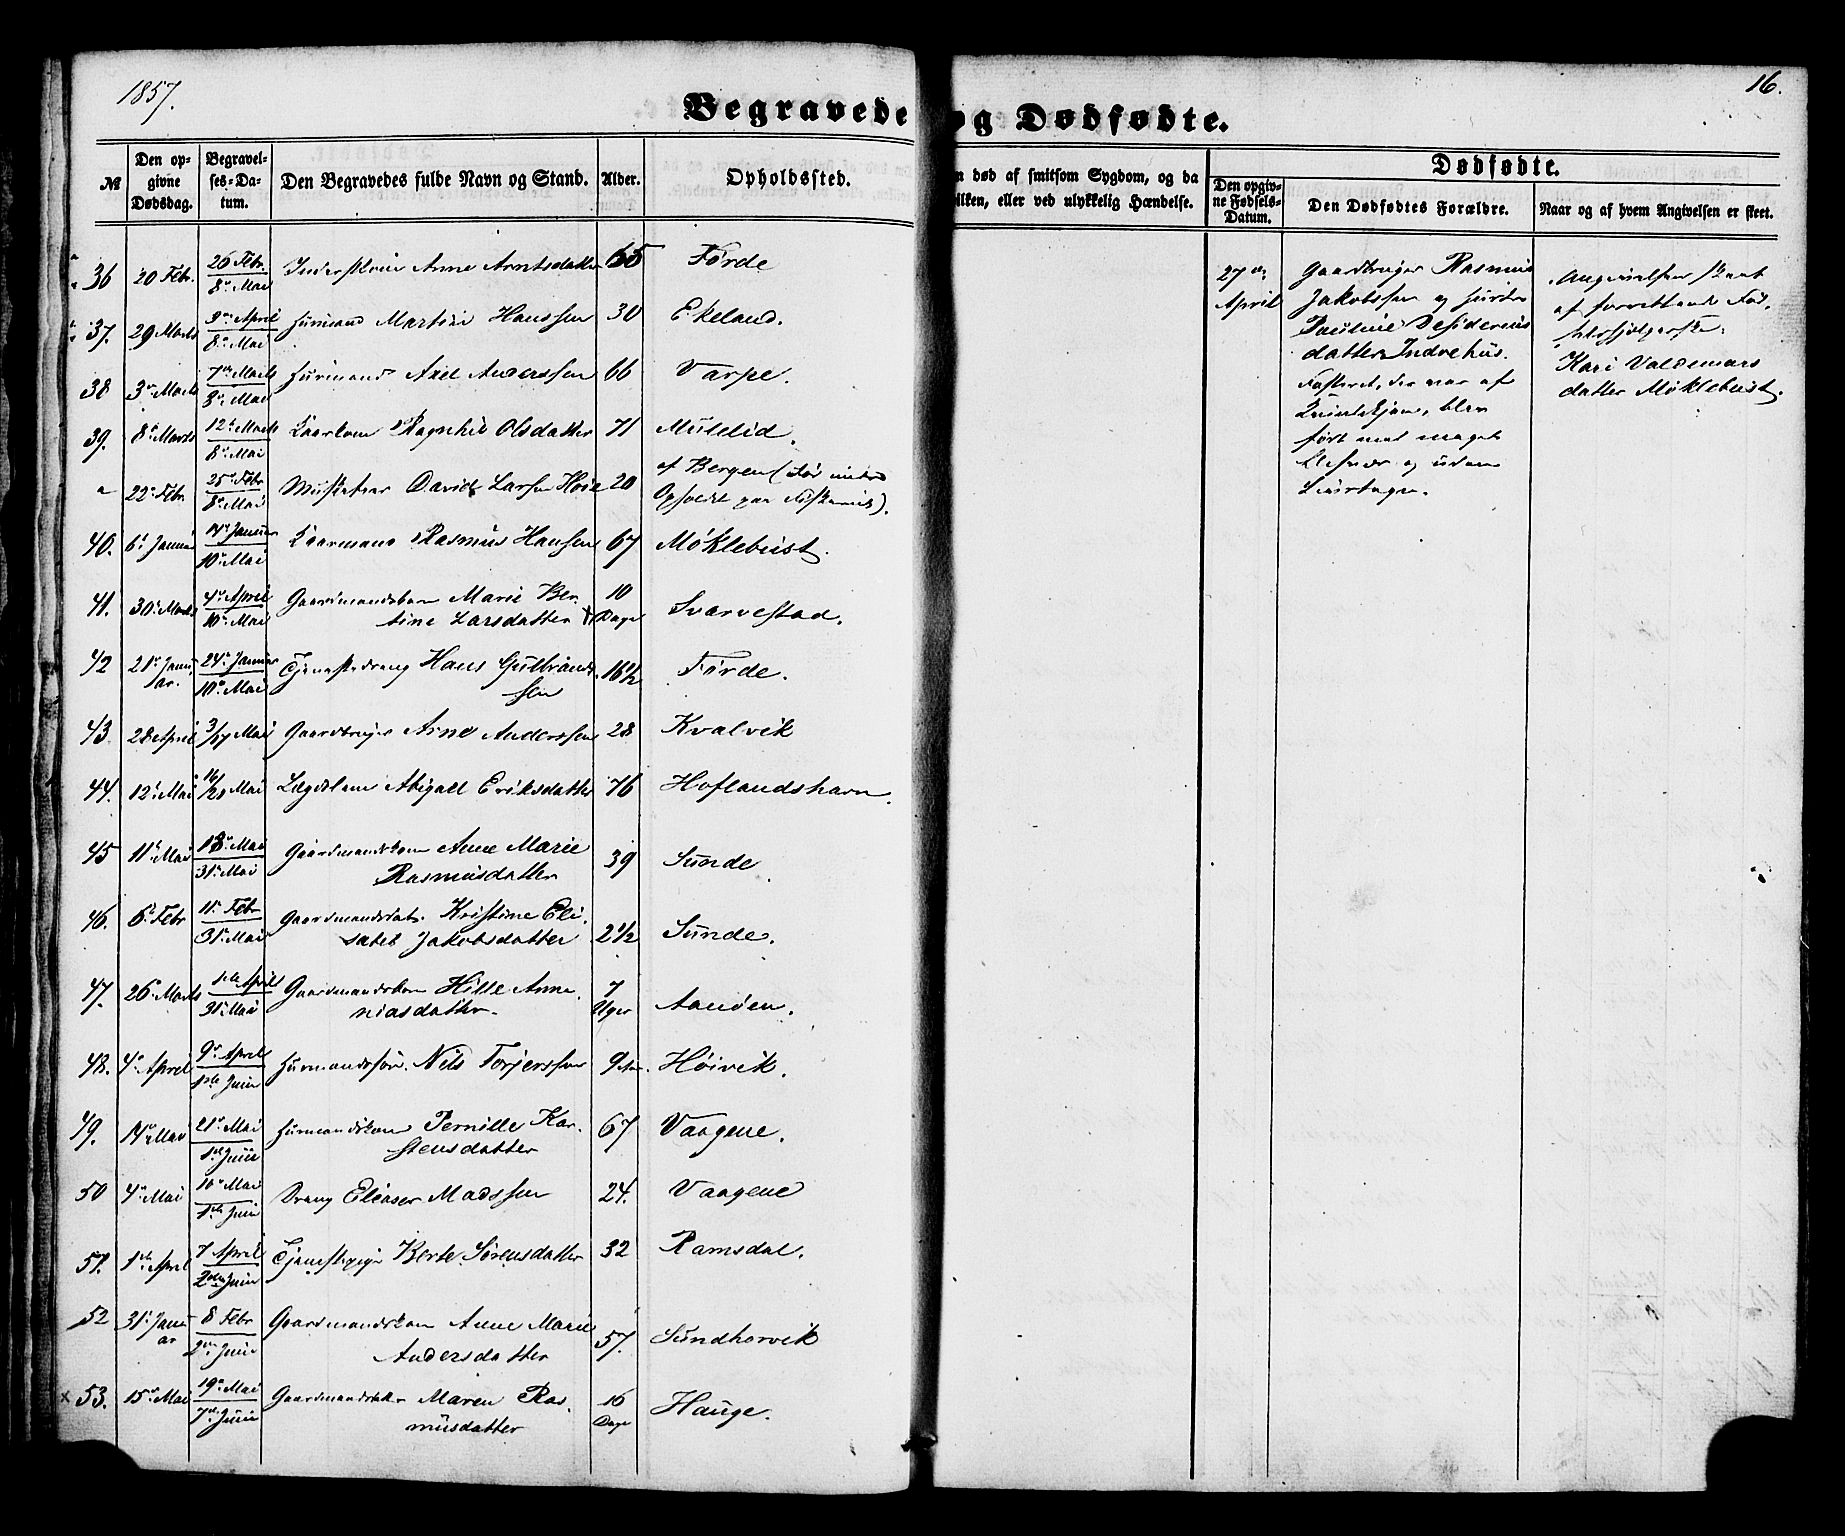 1857.
16.
Begravede og Dødfødte.
№
Den opgivne Dødsdag.
Begravelses-Datum.
Den Begravedes fulde Navn og Stand.
Alder.
Opholdssted.
n død af smitsom Sygdom, og da
ilken, eller ved ulykkelig Hændelse.
Dødfødte.
Den opgivne Fødsels-Datum.
Den Dødfødtes Forældre.
Naar og af hvem Angivelsen er skeet.
36 20 Febr. 26 Febr. 8de Mai Anne Arntsdatter 65 Førde
37. 29 Marts 3 April 8de Mai Huusmand Martin Hanssen 30 Ekeland.
38 3de Marts 7de Marts 8de Mai Huusmand Axel Anderssen 66 Varpe.
39. 8de Marts 12te Marts 8de Mai Kaarkone Ragnhil Olsdatter 71 Mulelid.
22de Febr 25de Febr 8de Mai David Larsen 20 af Bergen (
Opsedt paa
40. 6te Januar 14de Januar 10de Mai Kaarmand Rasmus Hansen 67 Møklebust.
41. 30te Marts 4de April 10de Mai Gaardmandsbarn Marie Ber-
tine Larsdatter 10 Dage Svarvestad.
42 21de Januar. 24de Januar 10de Mai Tjenestedreng Hans Gulbrand-
sen 16½ Førde.
43 28 April 3/17 Mai Gaardbruger Arne Anderssen 28 Kvalvik
44. 12te Mai 16/21 Mai Lægdslem Abigael Eriksdatter 76 Hoflandshavn.
45 11te Mai 18de Mai 31te Mai Gaardmandskone Anne Marie
Rasmusdatter 39 Sunde.
46. 6te Febr 11te Febr 31te Mai Gaardmandsdat. Kristine Eli-
sabet Jakobsdatter 2½ Sunde.
47. 26de Marts 1ste April 31te Mai Gaardmandsbarn Hille Anna-
niasdatter. 7 Uger
48. 4de April 9de April 1ste Juni Huusmandssøn. Nils Torjerssen 9 Høivik.
49. 14de Mai 21de Mai 1ste Juni Huusmandskone Pernille Kar-
stensdatter 67 Vaagene.
50 4de Mai 10de Mai 1ste Juni Dreng Eleaser Madssen 24. Vaagene
51. 1ste April 7 April 2den Juni Tjenestepige Berte Sørensdatter 32 Ramsdal.
52 31te Januar 8 Febr 2den Juni Gaardmandskone Anne Marie
Andersdatter 57. Sundhorvik
x 53. 15de Mai 19de Mai 7de Juni Gaardmandsdatter Maren Ras-
musdatter 16 Dage Hauge.
27de April
Gaardbruger Rasmus
Jakobssen og Hustru
Pauline Desiderius
datter Indrehus.
Fosteret, der var af
Kvindekjøn, blev
født med meget
Besvær og uden
Livstegn.
Angivelsen skeet
af forrettende Fød-
selshjelperske
Kari Valdemars
datter Møklebust.